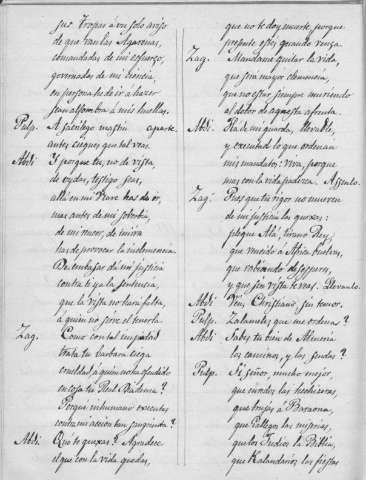 sus Tropas á un solo aviso
de que van las Agarenas,
comandadas de mi esfuerzo,
governadas de mi ciencia,
en persona he de ir á hazer
sean alfombra á mis huellas.
Pulp. A sacrilego mastin aparte
antes ciegues que tal veas.
Abdi: Y porque tu, no de vista,
de oydas, testigo seas,
allá en mi Nave has de ir,
mas antes de mi sobervia,
de mi rencor, de mi ira
has de provocar la inclemencia.
De embajador dá mi justicia
contra ti ya la sentencia,
que la vista no hará falta,
a quien no sirve el tenerla.
Zag. Como con tal impiedad
trata tu barbara ciega
crueldad, á quien no ha ofendido
en cosa tu Real Diadema?
Porque inhumano executas
contra mi accion tan sangrienta?
Abdi: Que te quexas? Agradece
el que con la vida quedas,
que no te doy muerte, porque
presente estes quando venza.
Zag. Mandame quitar la vida,
que será mayor clemencia,
que no estar siempre muriendo
al dolor de aquesta afrenta.
Abdi: Ha de mi guarda, llevadle,
y executad lo que ordenan
mis mandatos: viva, porque
mas con la vida padezca.
Zag: Pues que tu rigor no mueven
de mi justicia las quexas:
plegue Alá, tirano Dey,
que vencido á Africa buelvas,
que rabiando desesperes,
y que sin vista te veas. Llevanlo.
Abdi: Ven, Christiano, sin temor.
Pulp. Zalameles que me ordena?
Abdi: Sabes tu bien de Almeria
los caminos, y las sendas?
Pulp. Si, señor, mucho mejor,
que ondas las hechiceras,
que brujas á Baraona,
que Gallegos las
que los Indios la
que Kalandarios las fiestas